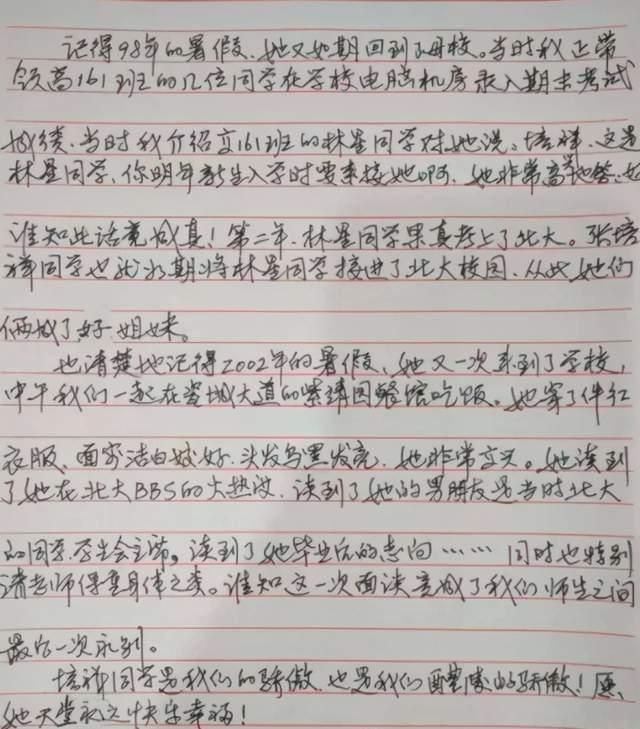 记得98年的暑假、她又如期回到了母校。当时我正带
领高161班的几位同学在学校电脑机房录入期末考试
成绩、当时我介绍高161班的林星同学对她说、培祥、这是
林星同学、你明年新生入学时要来接她啊、她非常高兴地答应
谁知此话竟成真！第二年、林星同学果真考上了北大。张培
祥同学也就如期将林星同学接进了北大校园、从此她们
俩成了好姐妹。
也清楚地记得2002年的暑假、她又一次来到了学校，
中午我们一起在瓷城大道的紫靖园餐馆吃饭、她穿了件红
衣服、面容洁白姣好、头发乌黑发亮、她非常高兴。她谈到
了她在北大BBS的火热波、谈到了她的男朋友是当时北大
的同系学生会主席。谈到了她毕业后的志向……同时也特别
请老师保重身体之类。谁知这一次面谈竟成了我们师生之间
最后一次永别。
培祥同学是我们的骄傲、也是我们醴陵的骄傲！愿
她天堂永远快乐幸福！